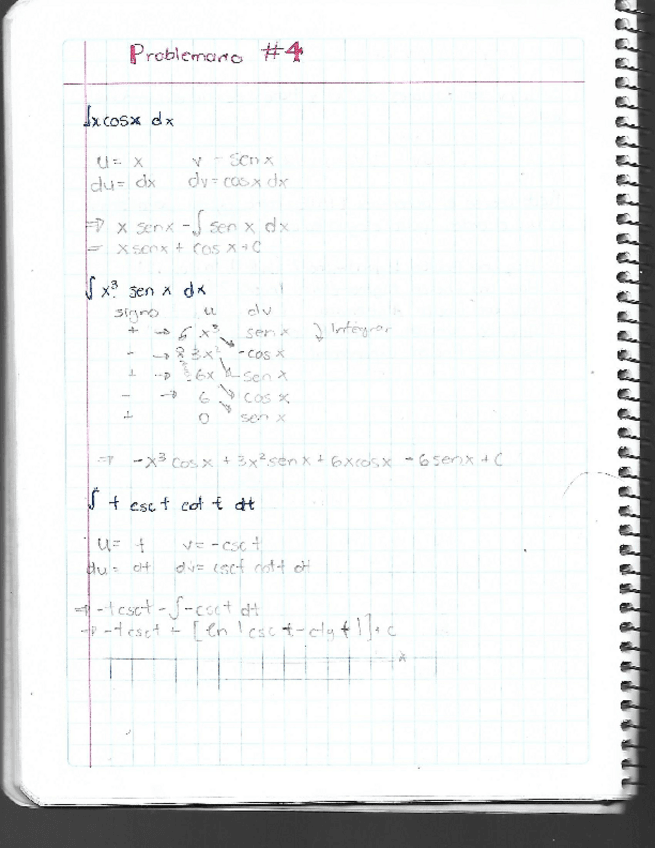 Problemario #4
∫x cosx dx
u= x v - senx
du= dx dv= cosx dx
⇒ x senx - ∫ sen x dx
= x senx + cos x + C
∫ x³ sen x dx
signo u dv
+ → x³ sen x Integrar
- → 3x² -cos x
+ → 6x -sen x
- → 6 cos x
+ 0 sen x
⇒ -x³ cosx + 3x² senx + 6xcosx - 6senx + C
∫ t csc t cot t dt
u= t v= -csc t
du= dt dv= csct cott dt
⇒ -t csct - ∫ -csc t dt
⇒ -t csct + [ln |csc t - ctg t|] + C